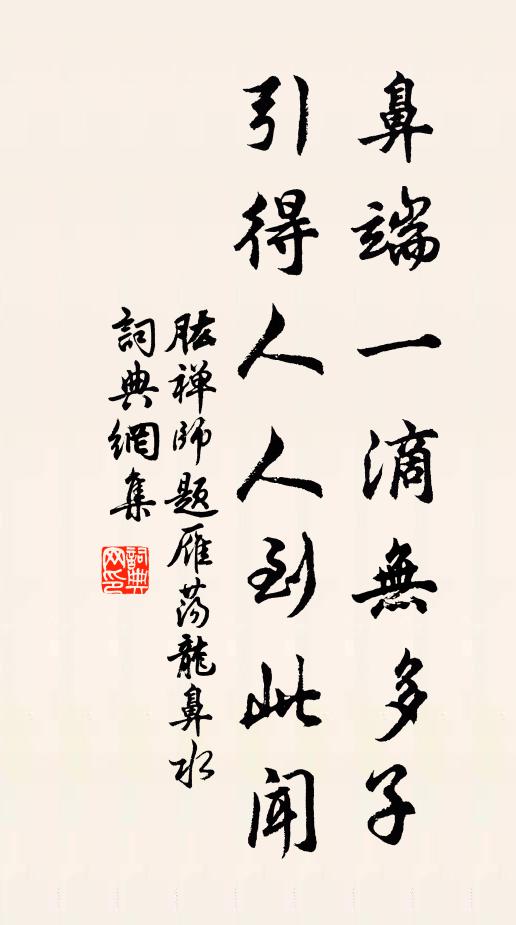 鼻端一滴無多子
引得人人到此聞
肱禅師题雁荡龍鼻水
詞典網集
詞典網印